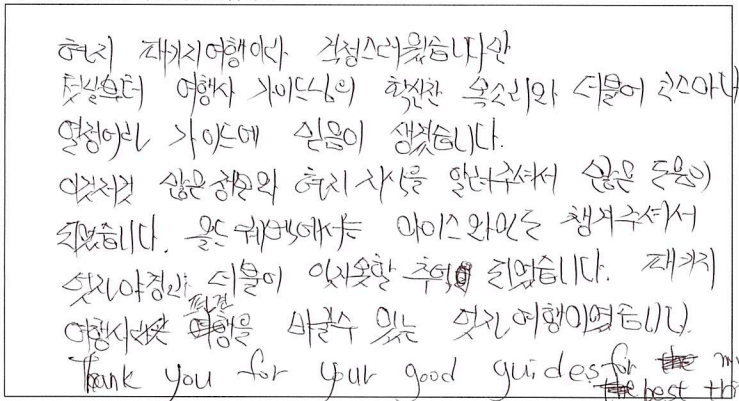 현지 패키지여행이라 걱정스러웠습니다만
첫날부터 여행사 가이드님의 확신찬 목소리와 더불어 코스마다
열정어린 가이드에 믿음이 생겼습니다.
이것저것 많은 정보와 현지 지식을 알려주셔서 많은 도움이
되었습니다. 올드퀘벡에서는 아이스와인도 챙겨주셔서
멋진야경과 더불어 잊지못할 추억이 되었습니다. 패키지
여행사 편견을 바꿀수 있는 멋진여행이였습니다.
Thank you for your good guides for
the best